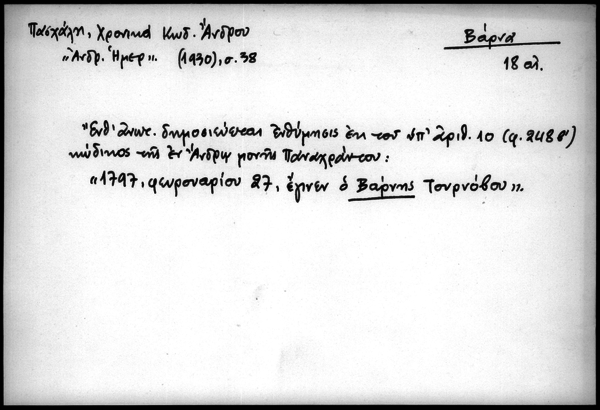 Πασχάλη, Χρονικά Κωδ. Ἄνδρου
"Ἀνδρ. Ἡμερ". (1930), σ. 38
Βάρνα
18 αἰ.
Ἔνθ' ἀνωτ. δημοσιεύεται ἐνθύμησις ἐκ τοῦ ὑπ' ἀριθ. 10 (φ. 248 β')
κώδικος τῆς ἐν Ἄνδρῳ μονῆς Παναχράντου:
"1797, φευρουαρίου 27, ἔγινεν ὁ Βάρνης Τουρνόβου".